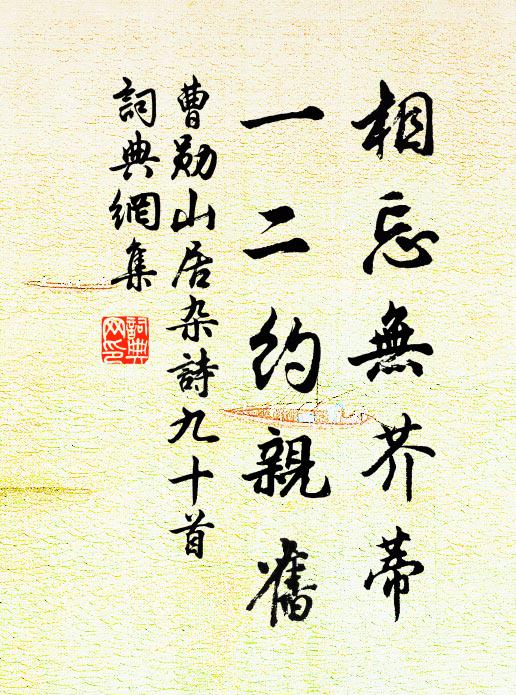 相忘無芥蒂
一二約親舊
曹勛山居杂詩九十首
詞典網集
詞典網印